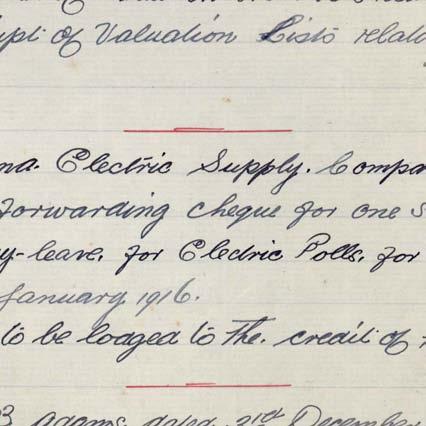 ipt of Valuation Lists relat
na. Electric Supply. Compa
forwarding cheque for one s
y-leave, for Electric Polls, for
January 1916.
to be lodged to the. credit of
B Adams dated 31st December